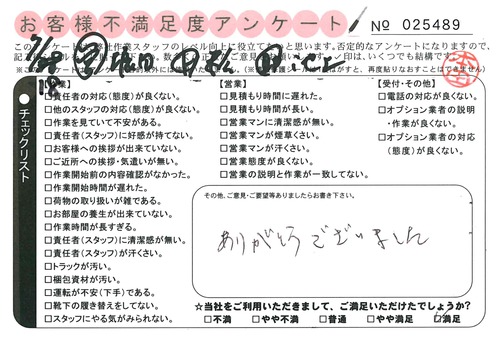 お客様不満足度アンケート
No 025489
チェックリスト
【作業】
□責任者の対応(態度)が良くない。
□他のスタッフの対応(態度)が良くない。
□作業を見ていて不安がある。
□責任者(スタッフ)に好感が持てない。
□お客様への挨拶が出来ていない。
□ご近所への挨拶・気遣いが無い。
□作業開始前の内容確認がなかった。
□作業開始時間が遅れた。
□荷物の取り扱いが雑である。
□お部屋の養生が出来ていない。
□作業時間が長すぎる。
□責任者(スタッフ)に清潔感が無い。
□責任者(スタッフ)が汗くさい。
□トラックが汚い。
□梱包資材が汚い。
□運転が不安(下手)である。
□靴下の履き替えをしてない。
□スタッフにやる気がみられない。
【営業】
□見積もり時間に遅れた。
□見積もり時間が長い。
□営業マンに清潔感が無い。
□営業マンが煙草くさい。
□営業マンが汗くさい。
□営業態度が良くない。
□営業の説明と作業が一致してない。
【受付・その他】
□電話の対応が良くない。
□オプション業者の説明
・作業が良くない。
□オプション業者の対応
(態度)が良くない。
その他、ご意見・ご要望等ありましたらお書き下さい。
ありがとうございました
☆当社をご利用いただきまして、ご満足いただけたでしょうか?
□不満 □やや不満 □普通 □やや満足 □満足